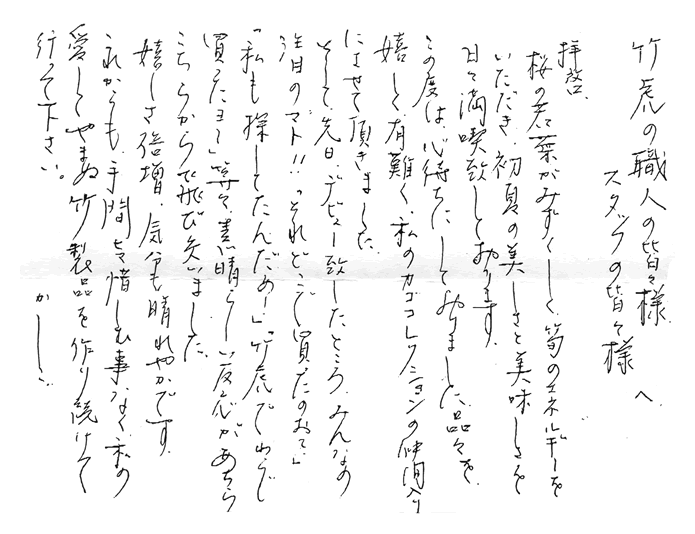 竹虎の職人の皆々様
スタッフの皆々様 へ
拝啓
桜の若葉がみずみずしく、筍のエネルギーを
いただき、初夏の美しさと美味しさを
日々満喫致しております。
この度は、心待ちにしておりました品々を、
嬉しく、有難く、私のカゴコレクションの仲間入り
にさせて頂きました。
そして、先日、デビュー致しましたところ、みんなの
注目のマト!!「それどこで買ったのお?」
「私も探してたんだぁ!」「竹虎でわらじ
買ったヨ!」等々、素晴らしい反応があちら
こちらから飛び交いました。
嬉しさ倍増、気分も晴れやかです。
これからも、手間ヒマ惜しむ事なく、私の
愛してやまぬ竹製品を作り続けて
行って下さい。
かしこ